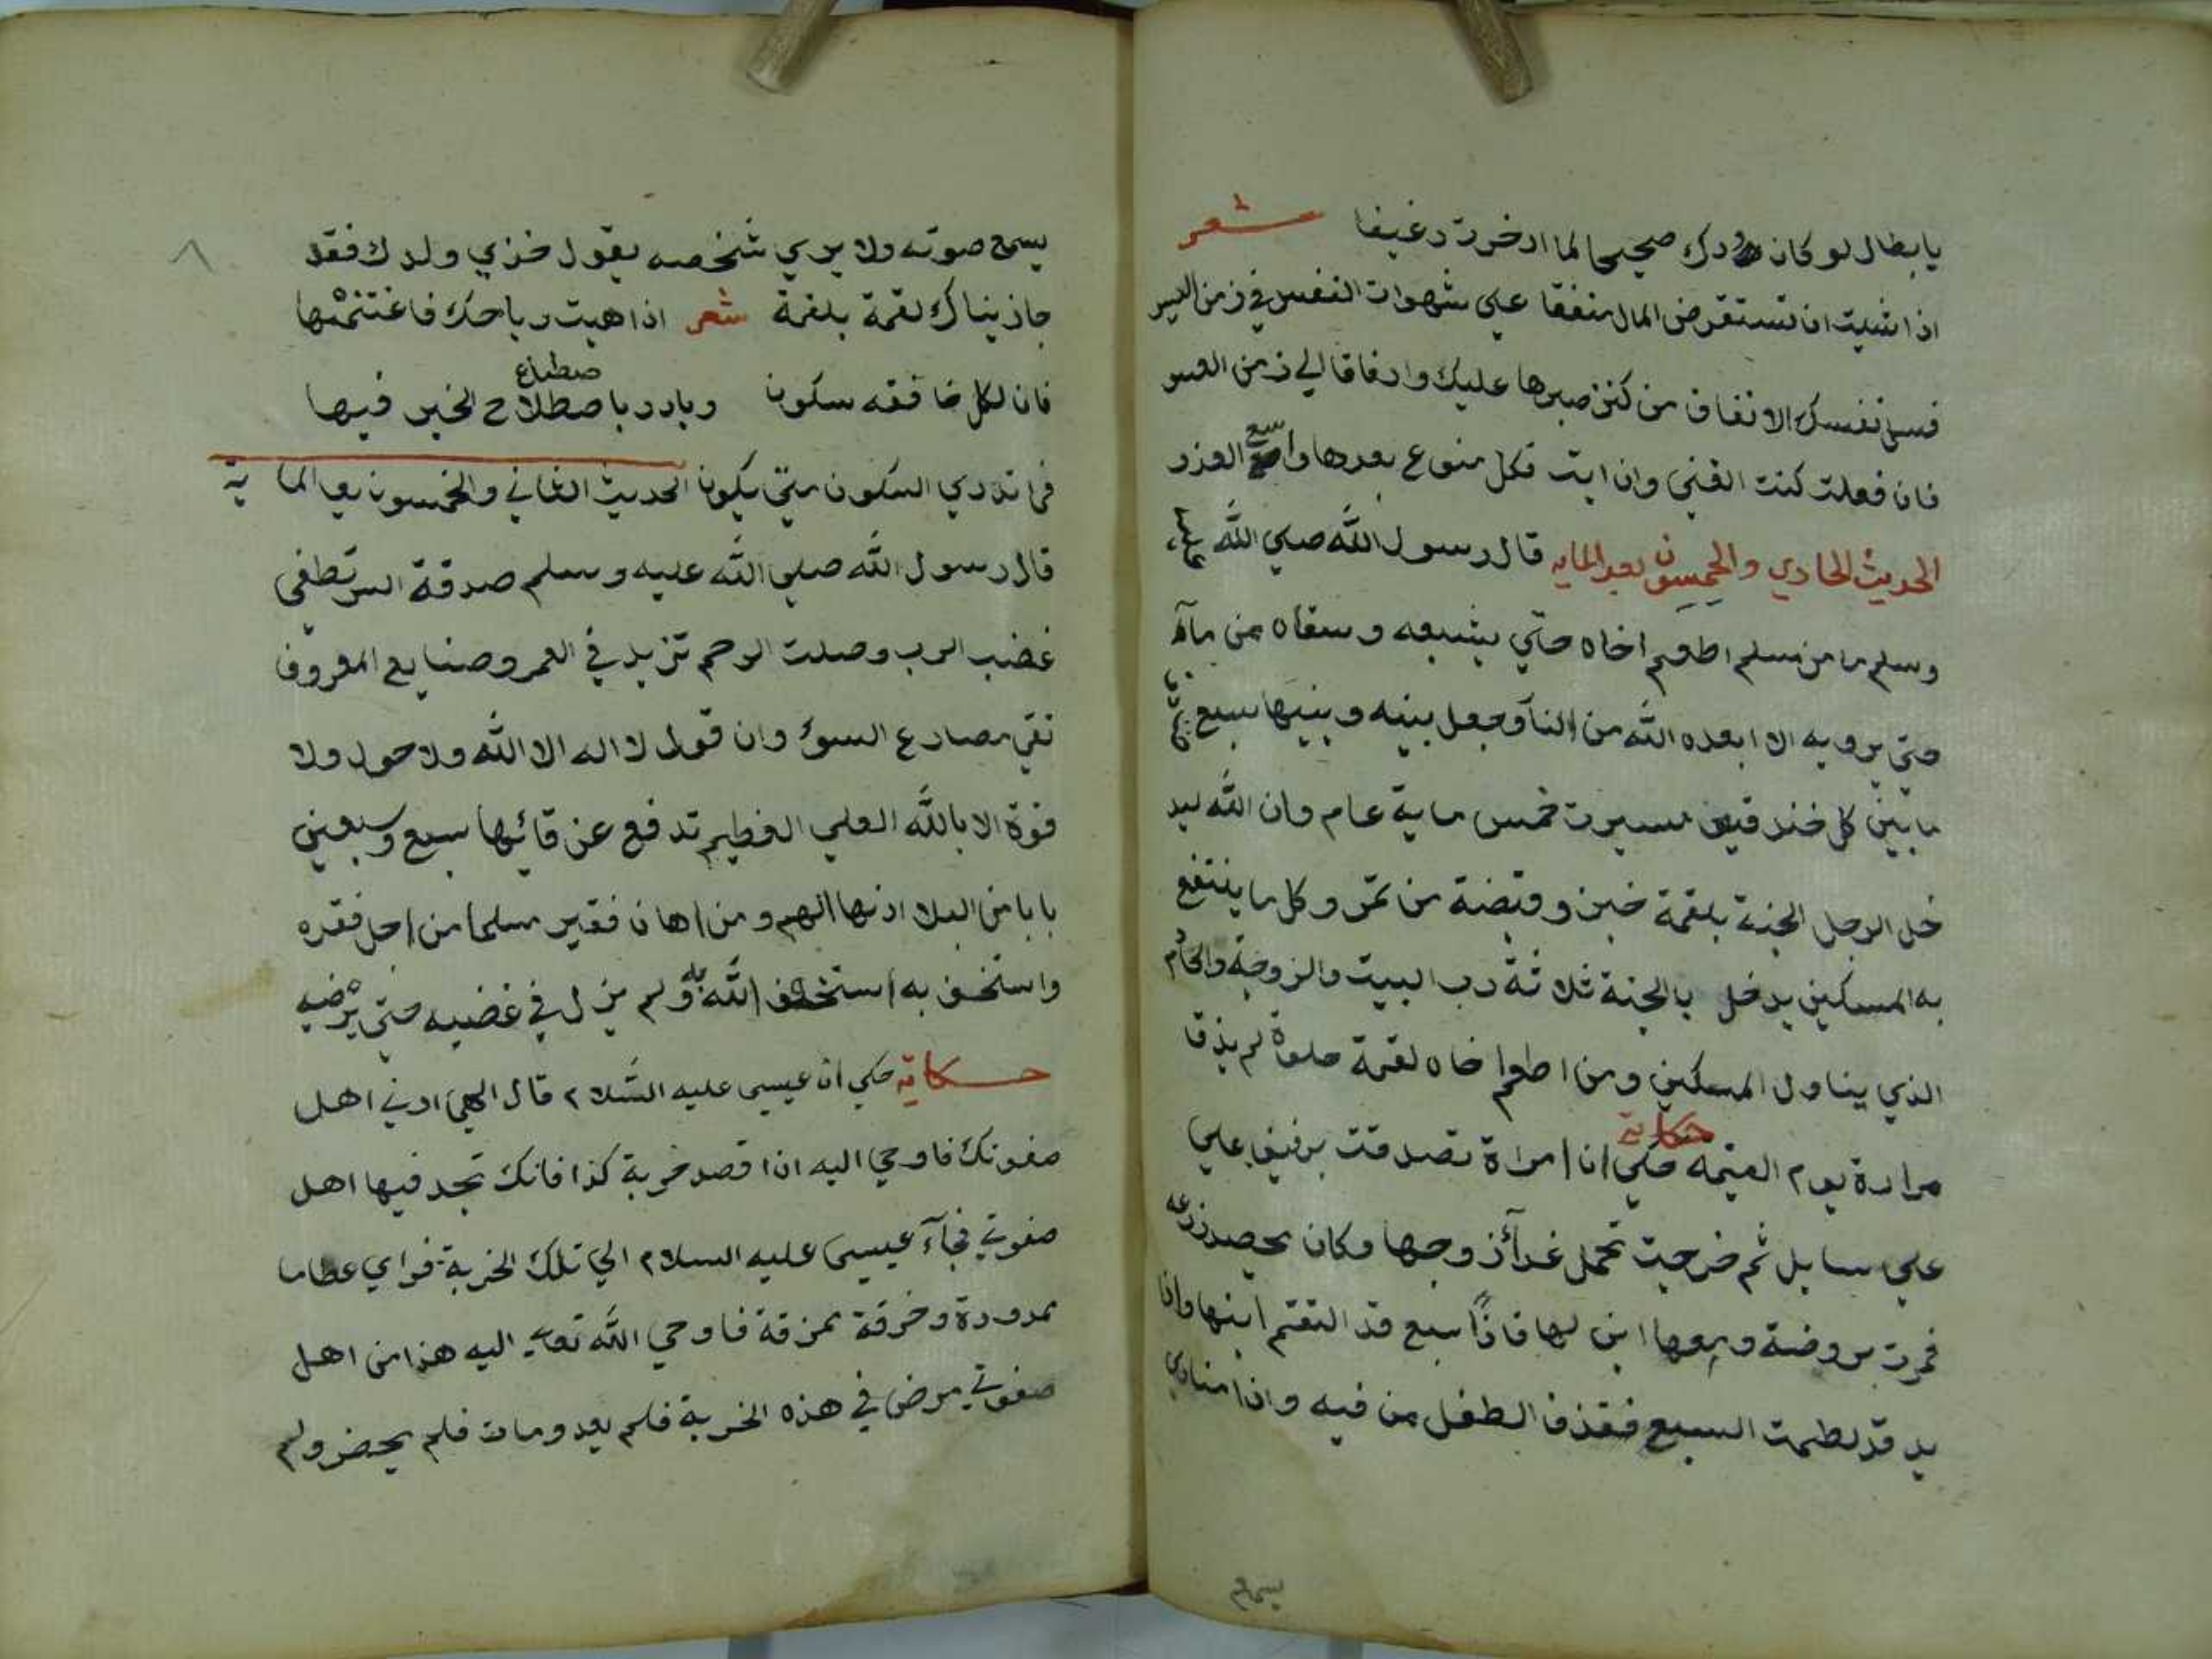 يابطال لو كان ودك صحيحا لما ادخرت رغيفا شعر
اذا شيت ان تستقرض المال منفقا علي شهوات النفس في زمن العسر
فسل نفسك الانفاق من كنز صبرها عليك وارفاقا الي زمن اليسر
فان فعلت كنت الغني وان ابت فكل منوع بعدها واسع العذر
الحديث الحادي والخمسون بعد المايه قال رسول الله صلي الله عليه
وسلم ما من مسلم اطعم اخاه حتي يشبعه وسقاه من مآء
حتي يرويه الا ابعده الله من النار وجعل بينه وبينها سبع
ما بين كل خندقين مسيرت خمس ماية عام وان الله ليد
خل الرجل الجنة بلقمة خبز وقبضة من تمر وكل ما ينتفع
به المسكين يدخل بالجنة ثلاثة رب البيت والزوجة والخادم
الذي يناول المسكين ومن اطعم اخاه لقمة حلوة لم يذق
مرارة يوم القيمه حكاية حكي ان امراة تصدقت برغيف علي
علي سايل ثم خرجت تحمل غدآء زوجها وكان يحصد زرعه
فمرت بروضة ومعها ابن لها فاذا سبع قد التقم ابنها واذا
يد قد لطمت السبع فقذف الطفل من فيه واذا مناد
يسمع
يسمع صوته ولا يري شخصه يقول خذي ولدك فقد
جازيناك لقمة بلقمة شعر اذا هبت رياحك فاغتنمها
فان لكل خافقه سكون وبادر باصطلاح صطناع الخير فيها
فما تدري السكون متي يكون الحديث الثاني والخمسون بعد الماية
قال رسول الله صلي الله عليه وسلم صدقة السر تطفي
غضب الرب وصلت الرحم تزيد في العمر وصنايع المعروف
تقي مصارع السوء وان قول لا اله الا الله ولا حول ولا
قوة الا بالله العلي العظيم تدفع عن قائلها سبع وسبعين
بابا من البلا ادناها الهم ومن اهان فقير مسلما من اجل فقره
واستخف به استخف الله به ولم يزل في غضبه حتي يرضيه
حكاية حكي ان عيسي عليه السلام قال الهي ارني اهل
صفوتك فاوحي اليه ان اقصد خربة كذا فانك تجد فيها اهل
صفوتي فجآء عيسي عليه السلام الي تلك الخربة فراي عظاما
ممدودة وخرقة ممزقة فاوحي الله تعالي اليه هذا من اهل
صفوتي مرض في هذه الخربة فلم يعد ومات فلم يحضر ولم